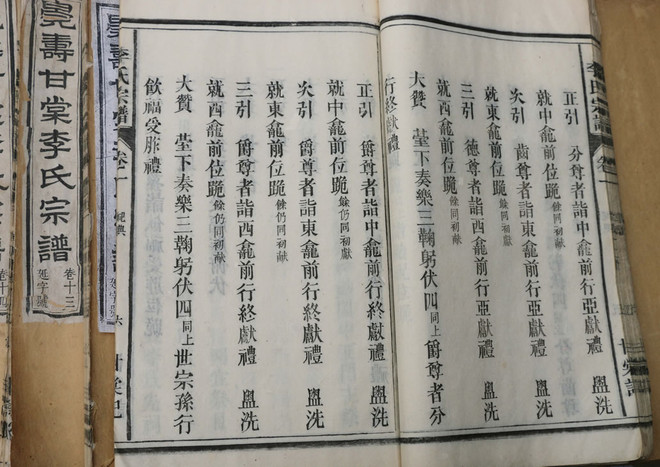 正引　分尊者詣中龕前行亞獻禮　盥洗
就中龕前位跪餘同初献
次引　齒尊者詣東龕前行亞獻禮　盥洗
就東龕前位跪餘同初献
三引　德尊者詣西龕前行亞獻禮　盥洗
就西龕前位跪餘同初献
大贊　堂下奏樂三鞠躬伏四同上爵尊者分
行終獻禮
正引　爵尊者詣中龕前行終獻禮　盥洗
就中龕前位跪餘仍同初献
次引　爵尊者詣東龕前行終獻禮　盥洗
就東龕前位跪餘仍同初献
三引　爵尊者詣西龕前行終獻禮　盥洗
就西龕前位跪餘仍同初献
大贊　堂下奏樂三鞠躬伏四同上世宗孫行
飲福受胙禮
李氏宗譜　卷一　祀典　六
壽甘棠李氏宗譜　卷十三
卷十四